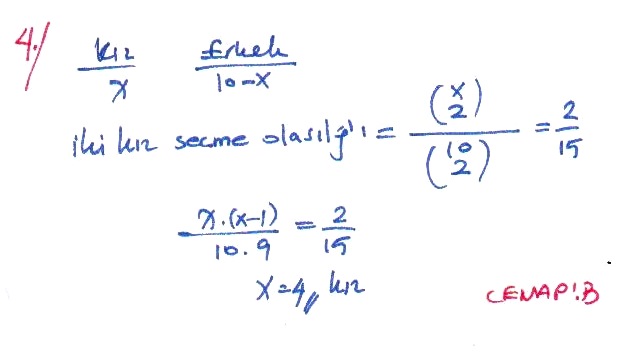 4./
kız Erkek
x 10-x
iki kız secme olasılığı = (x 2) / (10 2) = 2/15
x.(x-1) / 10.9 = 2/15
x=4, kız
CEVAP:B